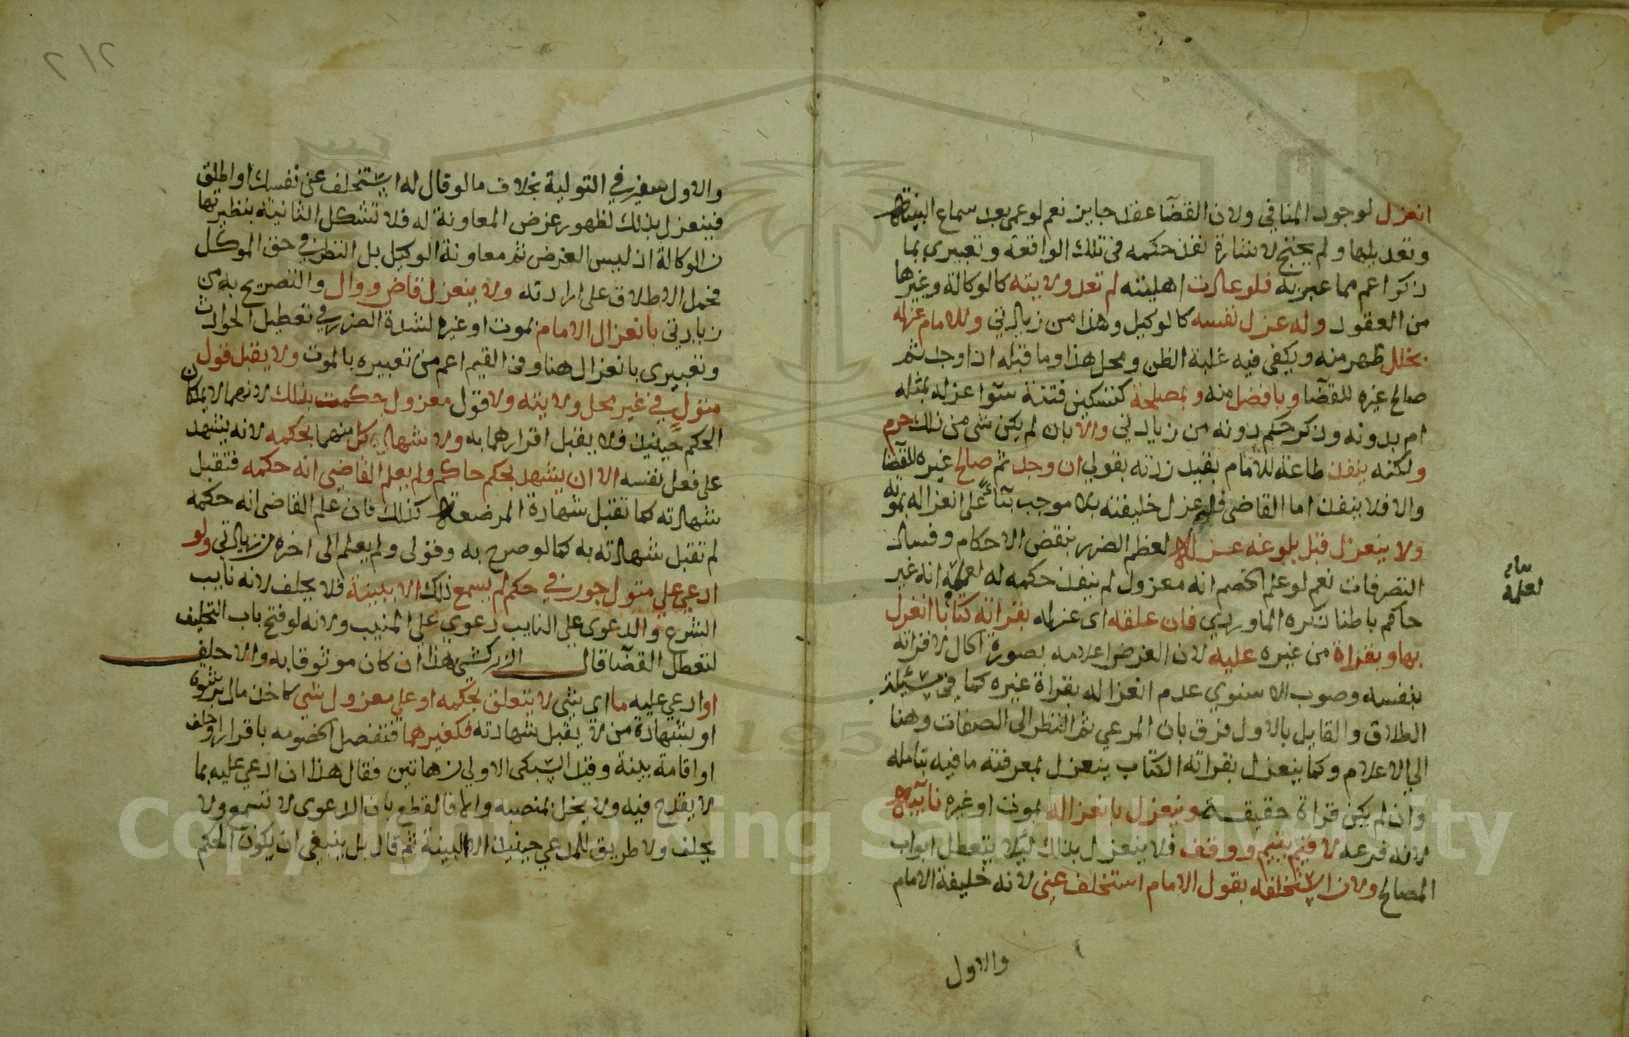 انعزل لوجود المنافي ولان القضا عقد جايز نعم لو عمي بعد سماع البينة
وتعديلها ولم يحتج لاشارة نفذ حكمه في تلك الواقعة وتعبيري بما
ذكر اعم مما عبر به فلو عادت اهليته لم تعد ولايته كالوكالة وغيرها
من العقود وله عزل نفسه كالوكيل وهذا من زيادتي وللامام عزله
بخلل ظهر منه ويكفي فيه غلبة الظن ومحل هذا وما قبله ان وجد ثم
صالح غيره للقضا وبافضل منه وبمصلحة كتسكين فتنة سوا عزله بمثله
ام بدونه وذكر حكم دونه من زيادتي والا بان لم يكن شي من ذلك حرم
ولكنه ينفذ طاعة للامام بقيد زدته بقولي ان وجد ثم صالح غيره للقضا
والا فلا ينفذ اما القاضي فله عزل خليفته بلا موجب بناء على انعزاله بموته
ولا ينعزل قبل بلوغه عزله لعظم الضرر بنقض الاحكام وفساد
التصرفات نعم لو علم الخصم انه معزول لم ينفذ حكمه له لعلمه انه غير
حاكم باطنا ذكره الماوردي فان علقه اي عزله بقراته كتابا انعزل
بها وبقراة من غيره عليه لان الغرض اعلامه بصورة الحال لا قراته
بنفسه وصوب الاسنوي عدم انعزاله بقراة غيره كما في مسئلة
الطلاق والقايل بالاول فرق بان المرعي ثم النظر الى الصفات وهنا
الى الاعلام وكما ينعزل بقراته الكتاب ينعزل بمعرفته ما فيه بتامله
وان لم يكن قراة حقيقة وينعزل بانعزاله بموت او غيره نايبه
لانه فرعه لا قيم يتيم ووقف فلا ينعزل بذلك ليلا يتعطل ابواب
المصالح ولا من استخلفه بقول الامام استخلف عني لانه خليفة الامام
والاول
لعلمه
٢١٢
والاول سفير في التولية بخلاف ما لو قال له استخلف عن نفسك او اطلق
فينعزل بذلك لظهور غرض المعاونة له فلا تشكل الثانية بنظيرتها
من الوكالة اذ ليس الغرض ثم معاونة الوكيل بل النظر في حق الموكل
فحمل الاطلاق على ارادته ولا ينعزل قاض ووال والتصريح به من
زيادتي بانعزال الامام بموت او غيره لشدة الضرر في تعطيل الحوادث
وتعبيري بانعزال هنا وفي القيم اعم من تعبيره بالموت ولا يقبل قول
متول في غير محل ولايته ولا قول معزول حكمت بذلك لانهما لا يملكان
الحكم حينيذ فلا يقبل اقرارهما به ولا شهادة كل منهما بحكمه لانه يشهد
على فعل نفسه الا ان يشهد بحكم حاكم ولم يعلم القاضي انه حكمه فتقبل
شهادته كما تقبل شهادة المرضعة كذلك فان علم القاضي انه حكمه
لم تقبل شهادته به كما لو صرح به وقولي ولم يعلم الى اخره من زيادتي ولو
ادعي على متول جور في حكم لم يسمع ذلك الا ببينة فلا يحلف لانه نايب
الشرع والدعوى على النايب دعوي على المنيب ولانه لو فتح باب التحليف
لتعطل القضا قال الزركشي هذا ان كان موثوقا به والا حلف
او ادعي عليه ما اي شي لا يتعلق بحكمه او على معزول شي كاخذ مال برشوة
او بشهادة من لا يقبل شهادته فكغيرهما فتفصل الخصومه باقرار او حلف
او اقامة بينة وقيد السبكي الاولى من هاتين فقال هذا ان ادعي عليه بما
لا يقدح فيه ولا يخل بمنصبه والا فالقطع بان الدعوى لا تسمع ولا
يحلف ولا طريق للمدعي حينيذ الا البينة ثم قال بل ينبغي ان يكون الحكم
Copyright © King Saud University
195